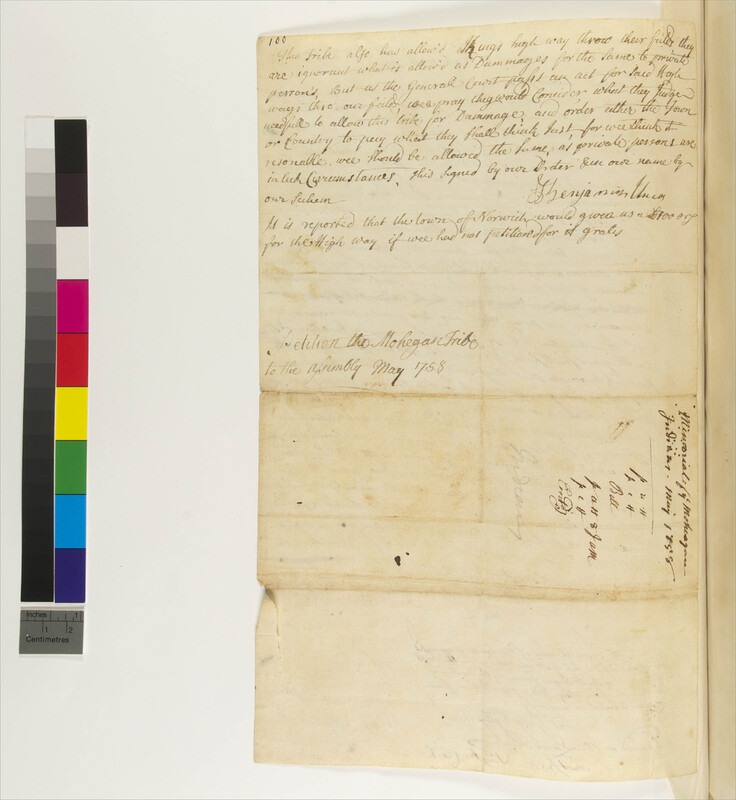 100
This Tribe also has allow'd Kings high way throw their fields they
are ignorant what is allow'd as Dammages for the same to private
persons, But as the General Court pass'd an act for said High
ways thro our field, wee pray they would Consider what they Judge
needfull to allow this tribe for Dammage, and order either the Town
or Country to pay what they shall think Just, for wee think it
resonable wee should be allowed the same as private persons are
in such Circumstances, this signed by our order & in our name by
our Sachem
Benjamin Uncas
It is reported that the town of Norwich would giveen us a £100
for the High way if wee had not petitioned for it gratis
Petition the Mohegan Tribe
to the Assembly May 1758
Memorial of ye Mohegan
Indians - May 1758
Bill
Indians
Inches 1
1 2
Centimetres